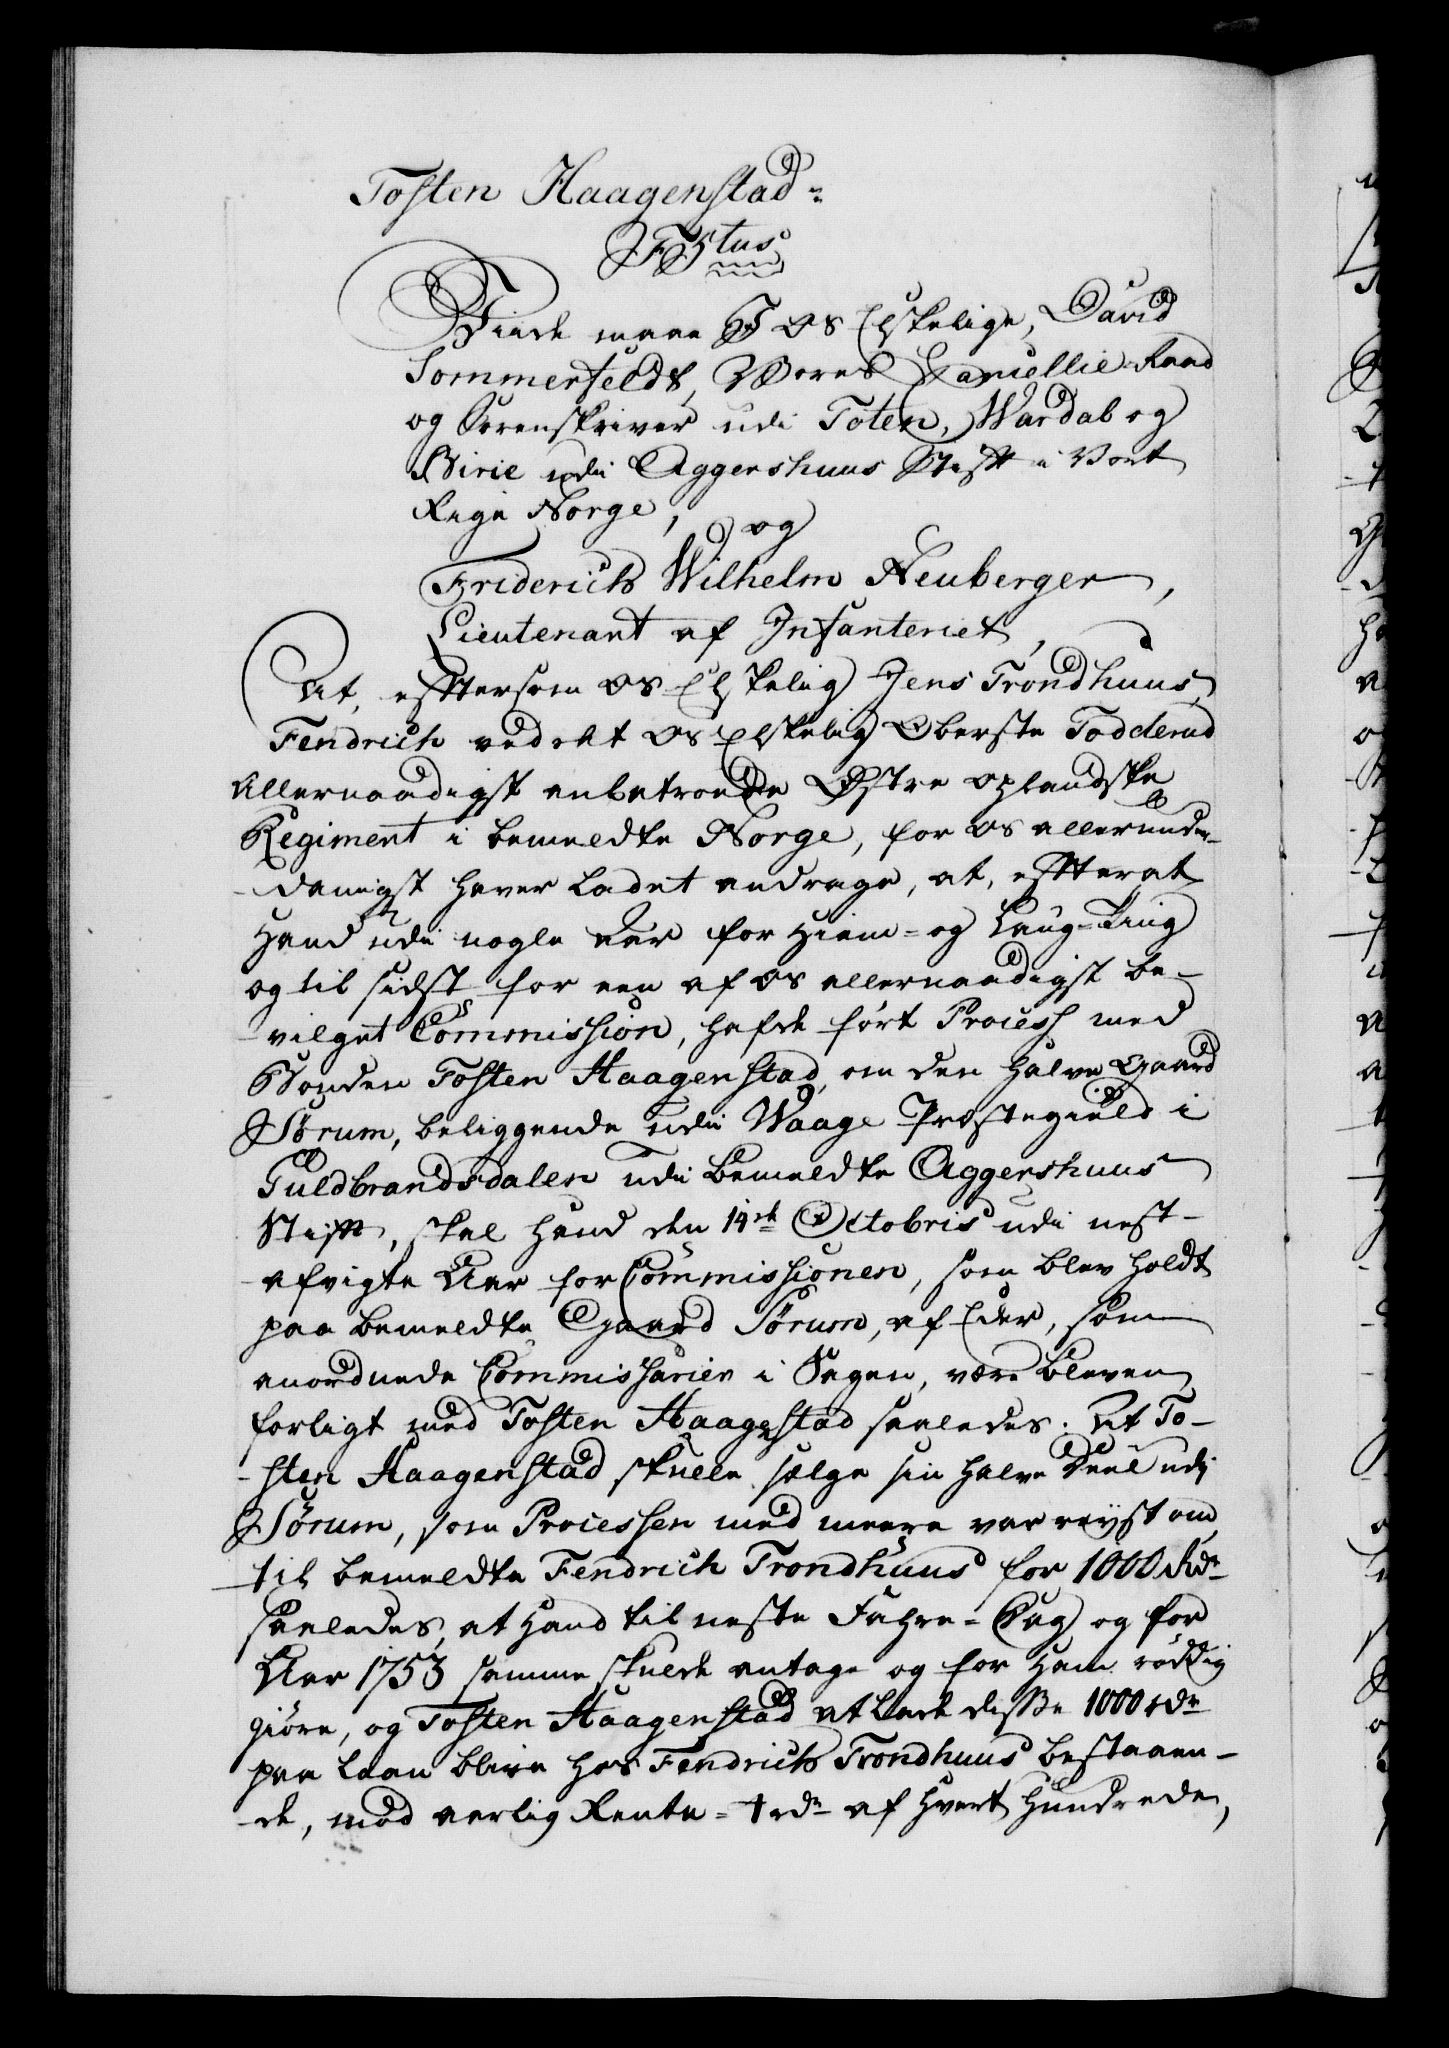 Tosten Haagenstad
F5tus
Viide maae I os Elskelige, David
Sommerfeldt, Vores Cancellie-Raad
og Sorenskriver udi Toten, Wardal og
Birie udi Aggershuus Stift i Vort
Rige Norge, og
Friderich Wilhelm Neuberger,
Lieutenant af Infanteriet,
At, efftersom os Elskelig Jens Trondhuus,
Fendrich ved det os Elskelig Oberste Todderud
allernaadigst anbetroede Østre oplandske
Regiment i bemeldte Norge, for os allerunder-
-danigst haver ladet andrage, at, effterat
hand udi nogle Aar for Hiem- og Laug-Ting
og til sidst for een af os allernaadigst be-
-vilget Commission, hafde ført Process med
Bonden Tosten Haagenstad, om den halve Gaard
Sørum, beliggende udi Waage Præstegield i
Guldbrandsdalen udi bemeldte Aggershuus
Stift, skal hand den 14de Octobris udi nest-
-afvigte Aar for Commissionen, som blev holdt
paa bemeldte Gaard Sørum, af Eder, som
anordnede Commissarier i Sagen, være bleven
forligt med Tosten Haagenstad saaledes: At To-
-sten Haagenstad skulle sælge sin halve Deel udi
Sørum, som Processen med meere var reyst om,
til bemeldte Fendrich Trondhuus for 1000 Rdr
saaledes, at hand til neste Fahre-Dag og for
Aar 1753 samme skulde antage og for ham røddig
giøre, og Tosten Haagenstad at lade disse 1000 rdr
paa Laan blive hos Fendrich Trondhuus bestaaen-
-de, mod aarlig Rente 4 rdr af hvert Hundrede,